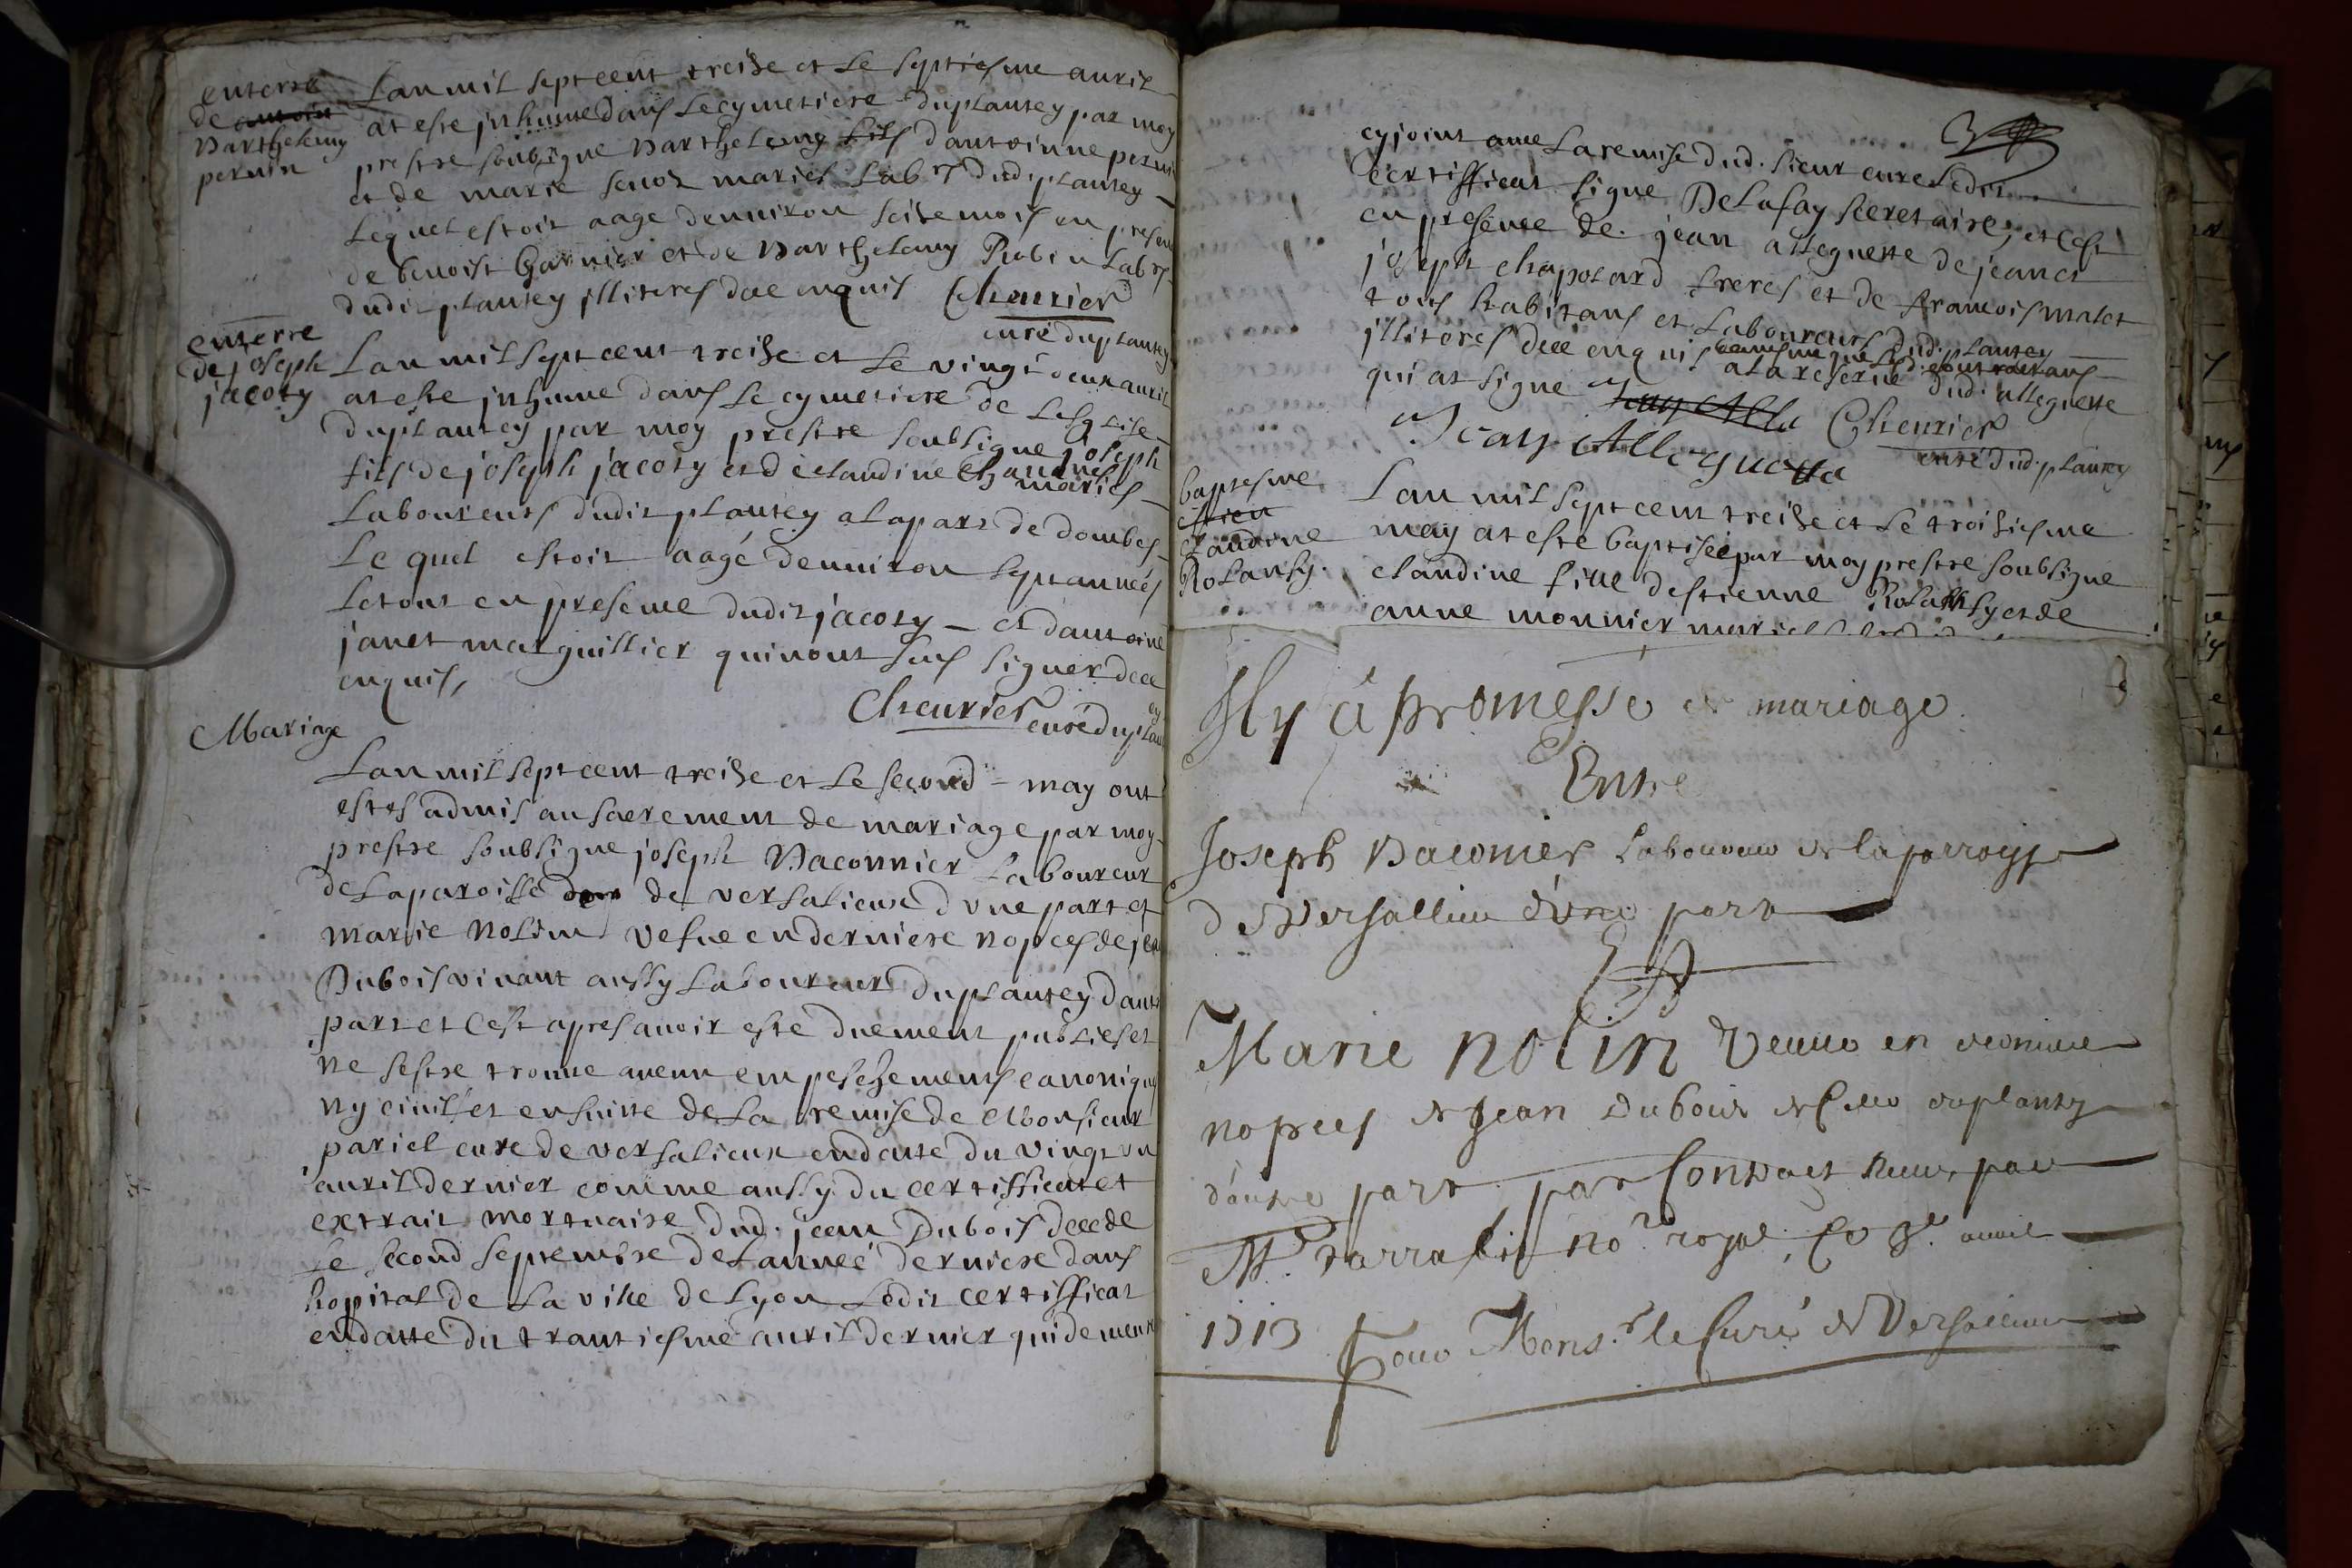 enterre
de antoin
Barthelemy
pernin
Lan mil sept cent treise et le septiesme auril
at este jnhume dans le cymetiere du plantey par moy
prestre soubsigne Barthelemy fils dantoinne pernin
et de marie seuoz maries lab.rs dud. plantey
lequel estoit aage denuiron seise mois en presen
de benoist Garnier et de Barthelemy Robin labrs
dudit plantey jlliteres dœ enquis Cheurier
curé du plantey
enterre
de joseph
jacoty
Lan mil sept cent treise et le vingt deux auril
at este jnhume dans le cymetiere de leglise
du plantey par moy prestre soubsigne joseph
fils de joseph jacoty et de claudine maries
laboureurs dudit plantey a la part de dombes
le quel estoit aagé denuiron sept anneés
le tout en presence dudit jacoty et dantoine
janet marguillier qui nont sceus signer dœ
enquis,
Cheurier curé du plantey
Mariage
Lan mil sept cent treise et le second may ont
estes admis au sacrement de mariage par moy
prestre soubsigne joseph Baconnier laboureur
de la paroisse de versalieux dvne part et
marie nolin vefue en derniere nopces de jean
Dubois viuant aussy laboureur du plantey dautre
part et cest apres auoir este duement publies et
ne sestre trouue aucun empeschements canonique
ny ciuil et ensuitte de la remise de Monsieur
pariel cure de versalieux en datte du vingt vn
auril dernier comme aussy du certifficat et
extrait mortuaire dud. jean Dubois decede
le second septembre de lanneé derniere dans
hopital de la ville de Lyon ledit certifficat
en datte du trantiesme auril dernier qui demeure
cy joint auec la remise dud. sieur cure ledit
certifficat signe Delafay secretaire, et cest
en presence de jean alleguette de jean et
joseph chapolard freres et de francois malet
tous habitans et laboureurs dud. plantey
jlliteres dœ enquis
a la reserue dud. alleguette
qui at signe
Jean Alleguette
Cheurier
curé dud. plantey
baptesme
claudine
Rolansy.
Lan mil sept cent treise et le troisiesme
may at este baptisée par moy prestre soubsigne
claudine fille destienne Rolansy et de
anne monnier
Jl y à promesse de mariage
Entre
Joseph Baconier laboureur de la parroysse
de Versallieu d'une part
Et
Marie nolin Veuue en derniere
nopces de Jean Dubois du plantey
d'autre part par Contract receu par
Me. no.re royal, auril
1713
Pour Mons.r le Curé de Versalieux